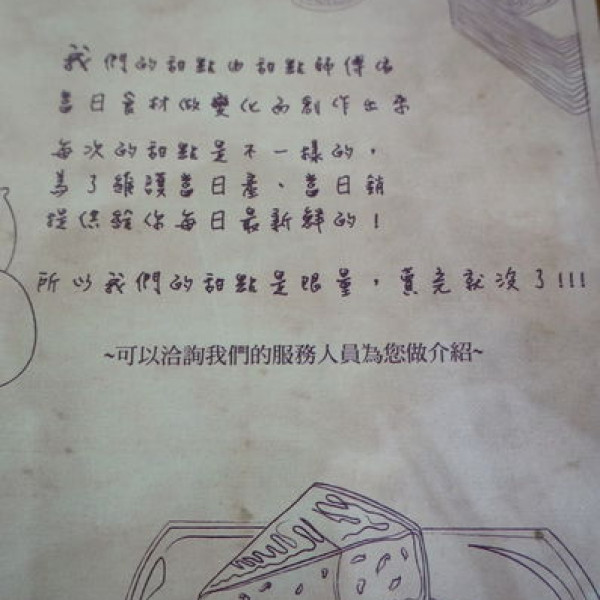 我們的甜點由甜點師傅依
當日食材做變化而創作出來
每次的甜點是不一樣的，
為了維護當日產、當日銷
提供給你每日最新鮮的！
所以我們的甜點是限量，賣完就沒了!!!
~可以洽詢我們的服務人員為您做介紹~